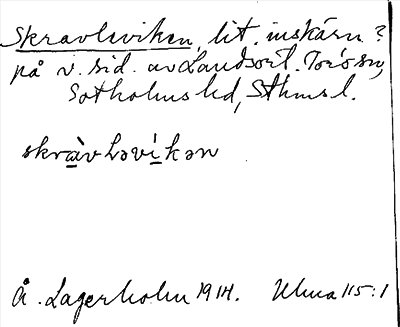 Skravleviken, lit. inskärn?
på v. sid. av Landsort. Torö sn,
Sotholms hd, Sthms l.
skràvLəvíkən
Å. Lagerholm 1914. Ulma 115:1